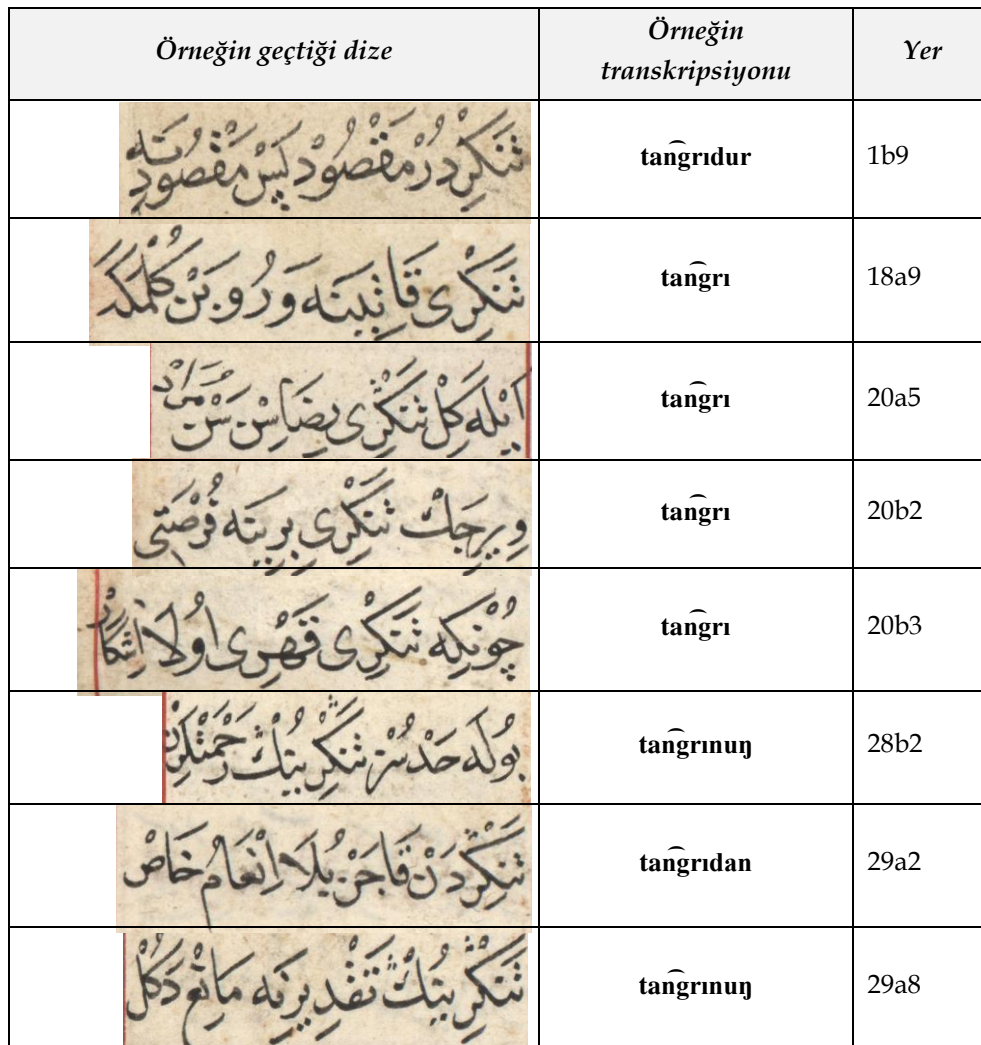 Örneğin geçtiği dize	Örneğin transkripsiyonu	Yer
تَنْكْرِدُرْ مَقْصُودْ پَسْ	tan͡grıdur	1b9
تَنْكْرِى	tan͡grı	18a9
اَيْلَه كِلْ تَنْكْرِى رِضَاسِنْ سَنْ مُرَادْ	tan͡grı	20a5
وِيرِجَكْ تَنْكْرِى بِرِينَه فُرْصَتِى	tan͡grı	20b2
چُونْكِه تَنْكْرِى قَهْرِى اُولَا	tan͡grı	20b3
بُولَه حَدْسُزْ تَنْكْرِينُكْ رَحْمَتْلَرِنْ	tan͡grınuŋ	28b2
تَنْكْرِدَنْ قَاجَنْ بُلَا اِنْعَامُ خَاصْ	tan͡grıdan	29a2
تَنْكْرِينُكْ تَقْدِيرِنَه مَانِعْ دَكُلْ	tan͡grınuŋ	29a8